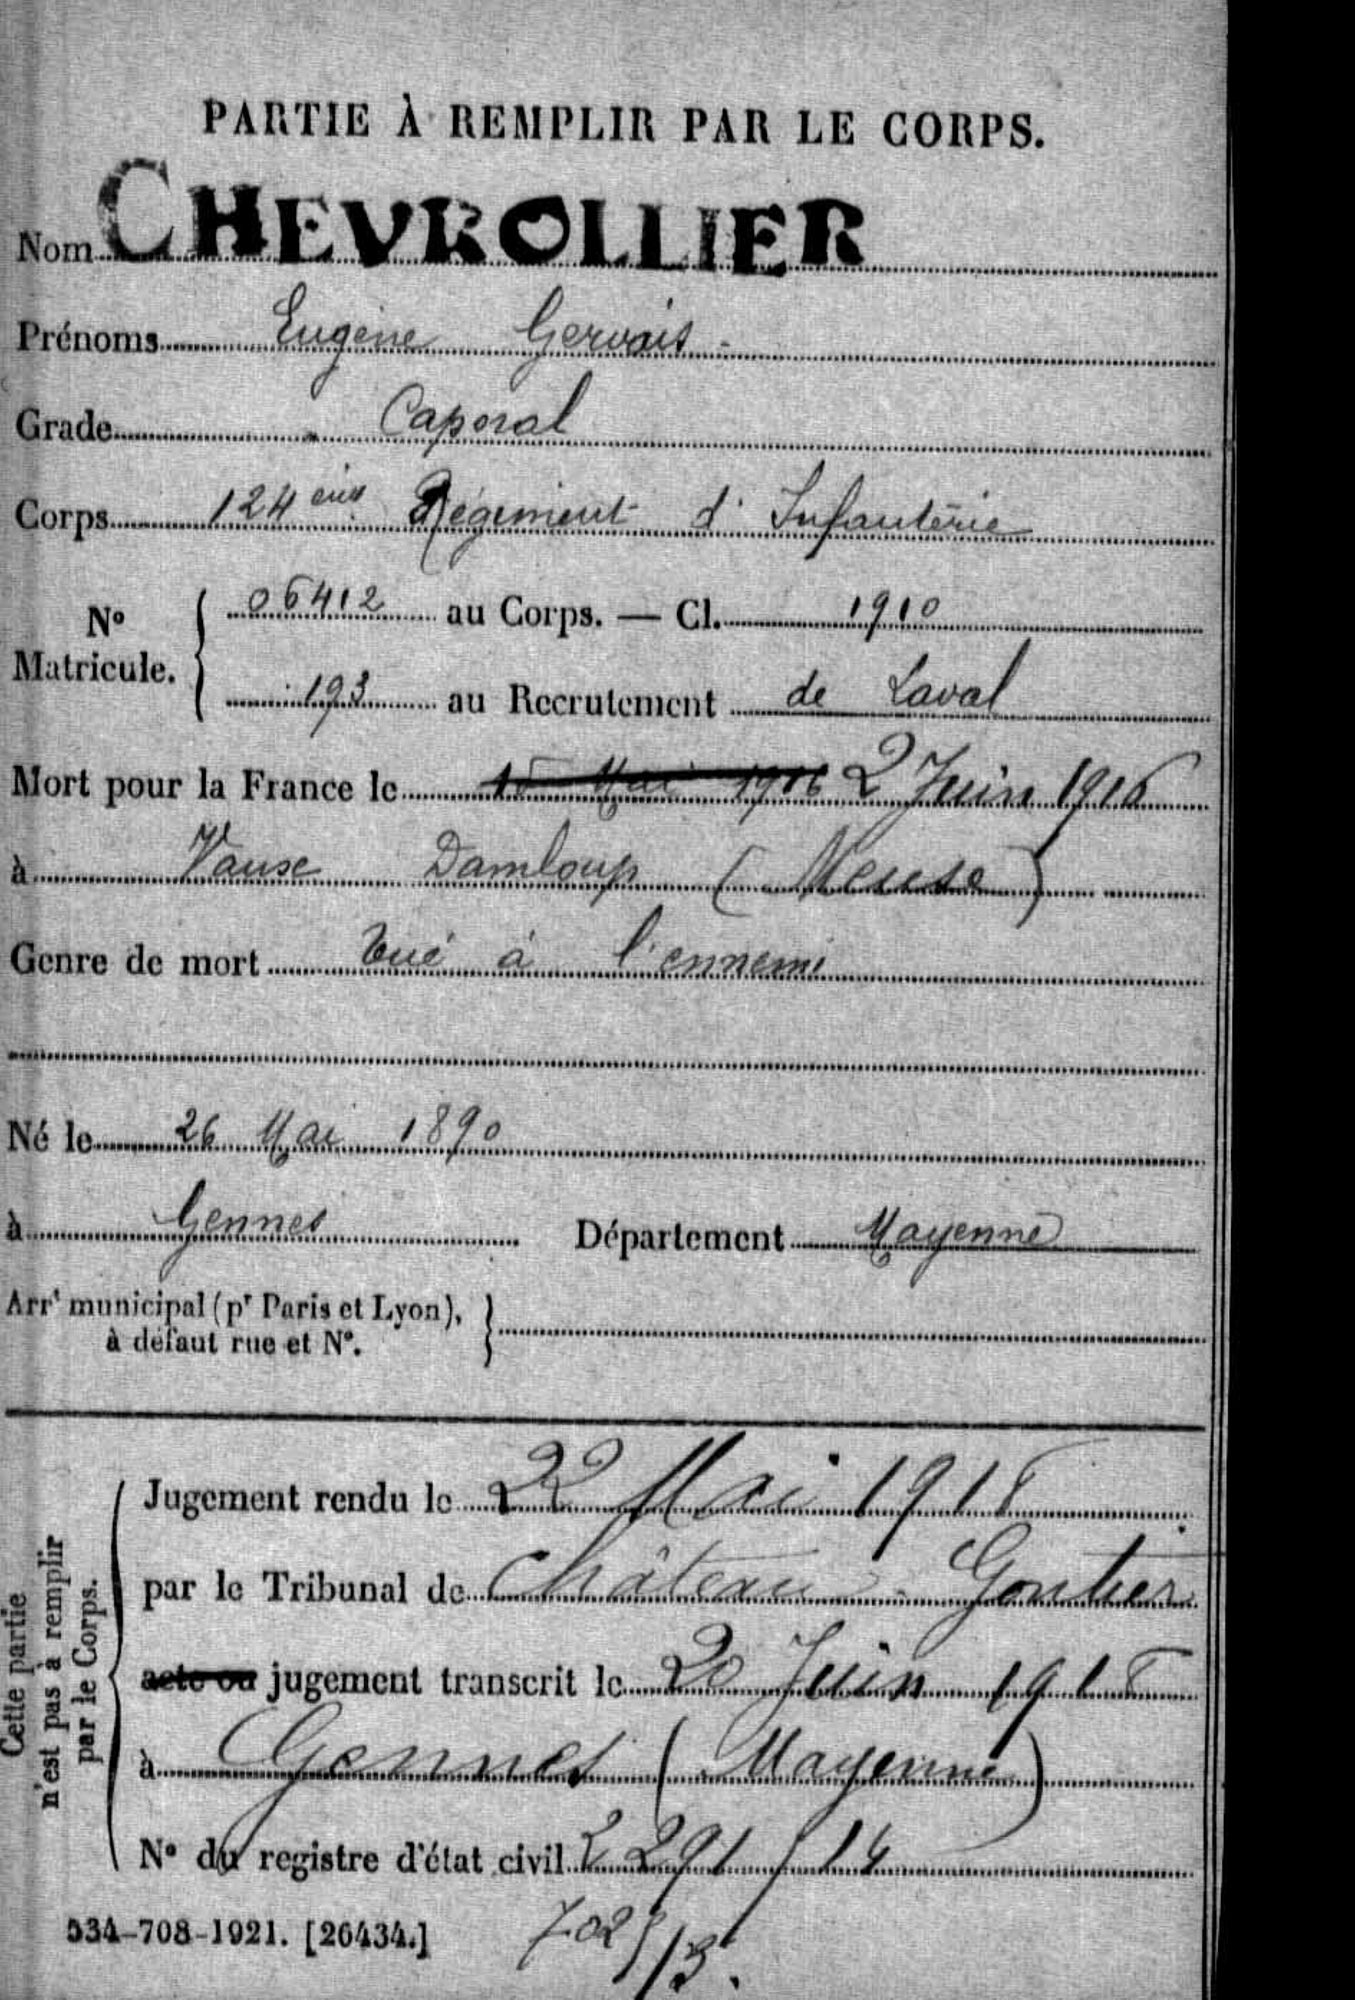 PARTIE À REMPLIR PAR LE CORPS.
Nom CHEVROLLIER
Prénoms Eugène Gervais
Grade Caporal
Corps 124ème Régiment d'Infanterie
N° Matricule. 06412 au Corps. — Cl. 1910
193 au Recrutement de Laval
Mort pour la France le 15 Mai 1916 2 Juin 1916
à Vaux Damloup (Meuse)
Genre de mort Tué à l'ennemi
Né le 26 Mai 1890
à Gennes Département Mayenne
Arrt municipal (pr Paris et Lyon),
à défaut rue et N°.
Cette partie
n'est pas à remplir
par le Corps.
Jugement rendu le 22 Mai 1918
par le Tribunal de Château-Gontier
acte ou jugement transcrit le 20 Juin 1918
à Gennes (Mayenne)
N° du registre d'état civil
534-708-1921. [26434.]